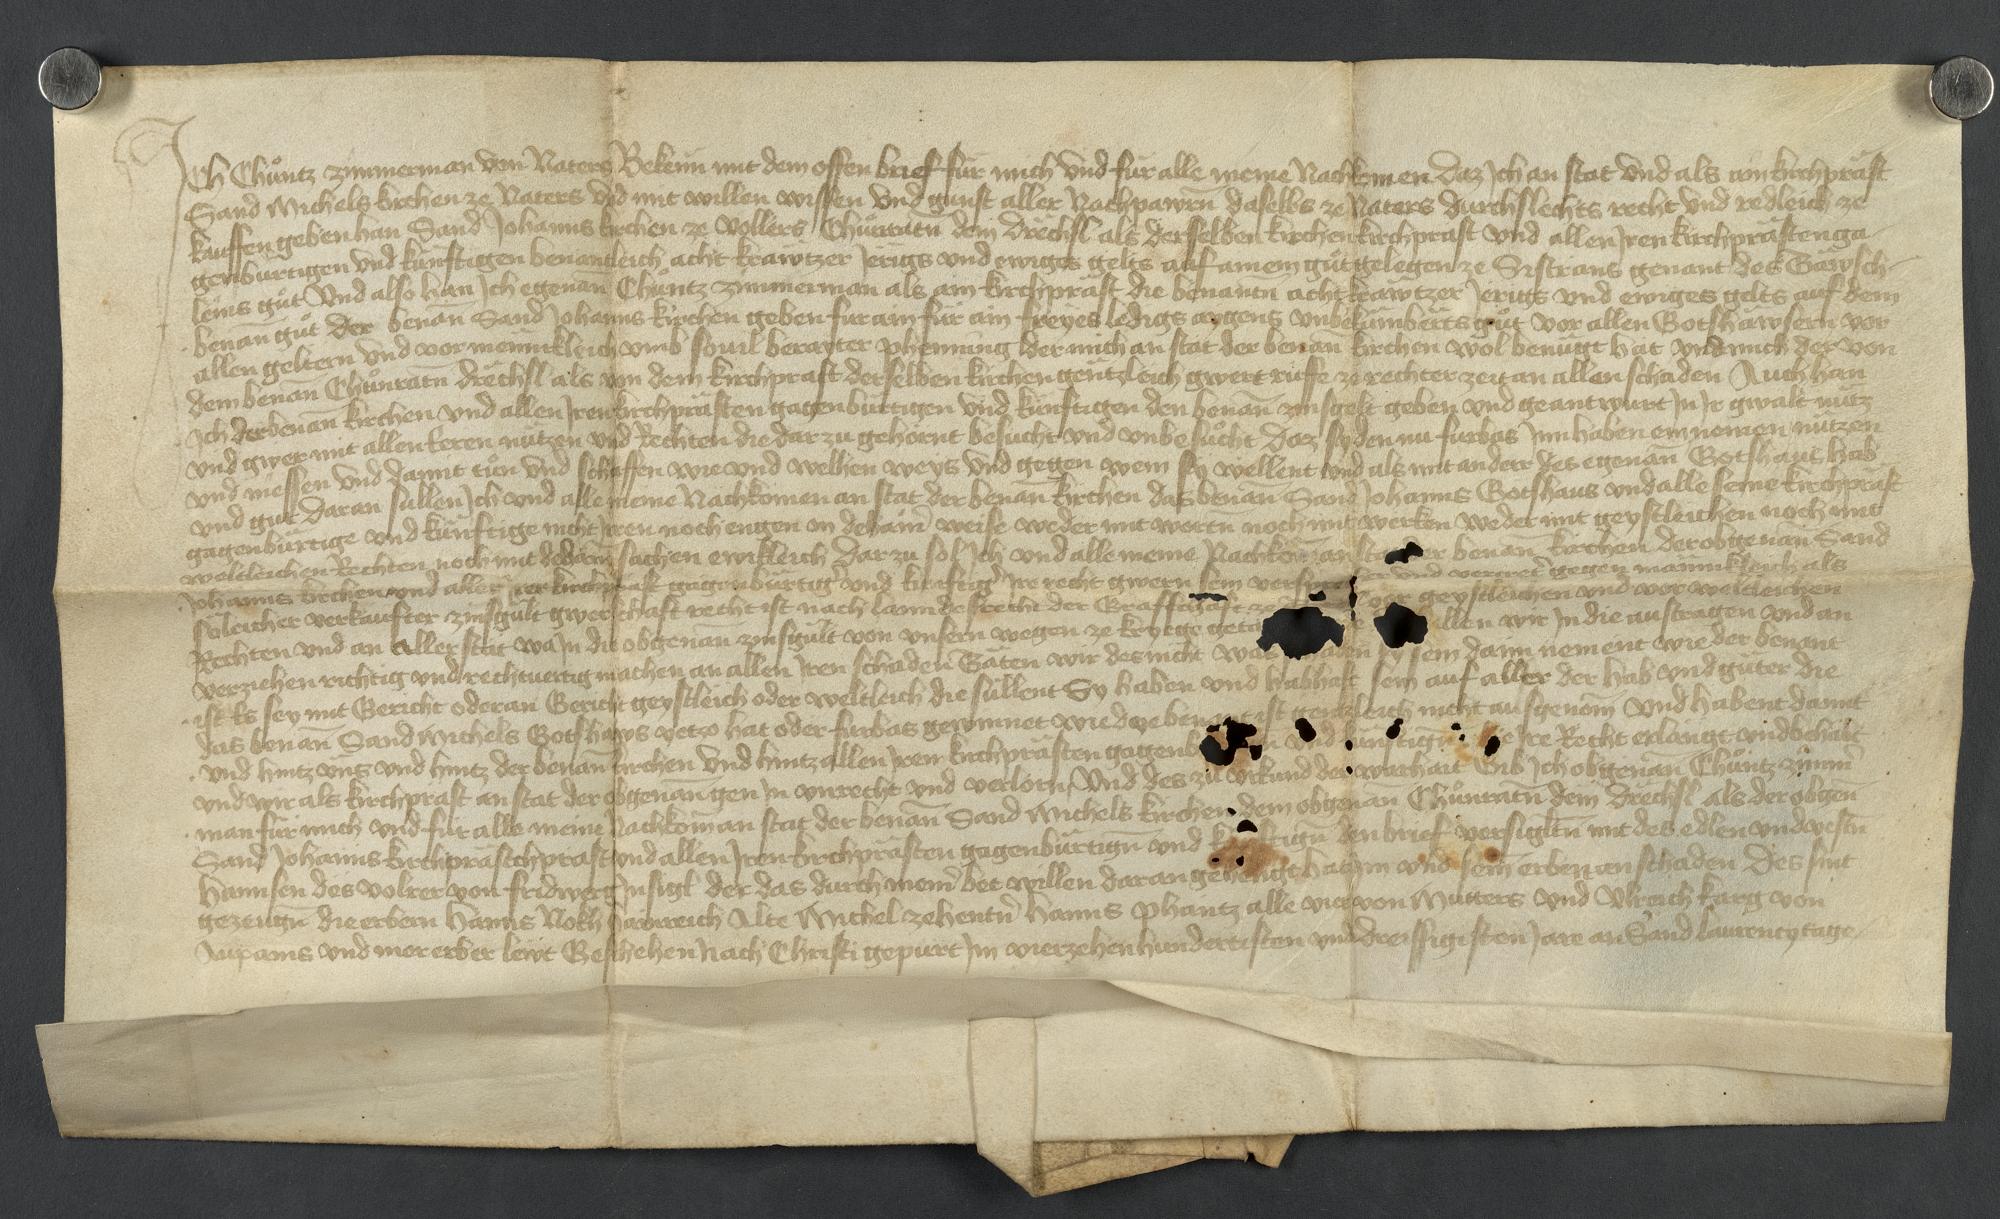 Ich Chůntz zimmerman von Naters Bekenn mit dem offen brief für mich vnd für alle meine Nachkomen Daz Ich an stat vnd als ain kirchpräst
Sand Michels kirchen ze Naters vnd mit willen wissen vnd gunst aller Nachpawrn daselbs ze Naters durchslechts recht vnd redleich ze
kauffen geben han Sand Johanns kirchen ze vollers Chůnratn dem Drëchsl als derselben kirchen kirchpräst vnd allen Iren kirchprästen ga
genbürtigen vnd künftigen benantleich acht kräwtzer Jërigs vnd ewiges gelts auf ainem gůt gelegen ze Sistrans genant des Gäwsch
leins gůt Vnd also han Ich egenan̄ Chůntz zimmerman als ain kirchpräst die benantn acht kräwtzer Jërigs vnd ewiges gelts auf dem
benan̄ gůt der benan̄ Sand Johanns kirchen geben für ain freyes ledigs aygens vnbekümberts gůt vor allen Gotshäwsern vor
allen geltern vnd vor männikleich vmb souil berayter phenning der mich an stat der benan̄ kirchen wol benügt hat vnd mich der von
dem benan̄ Chůnratn drëchsl als von dem kirchpräst derselben kirchen gentzleich gwert ze rechter zeit an allen schaden Auch han
Ich der benan̄ kirchen vnd allen Iren kirchprästen gagenbürtigen vnd künftigen den benan̄ zinsgelt geben vnd geantwurt In Ir gwalt nütz
vnd gwer mit allen eren nützen vnd Rechten die dar zu gehörnt besucht vnd vnbesůcht Daz sy den nu fürbas Inn haben einnemen nützen
vnd niessen vnd damit tůn vnd schaffen wie vnd welhen weys vnd gegen wem sy wellent vnd als mit ander des egenan̄ Gotshaus hab
vnd gut Daran süllen Ich vnd alle meine Nachkomen an stat der benan̄ kirchen das benan̄ Sand Johanns Gotshaus vnd alle seine kirchpräst
gagenbürtige vnd künftige nicht Iren noch engen In dehain̄ weise weder mit wortn noch mit werken weder mit geystleichen noch mit
weltleichen Rechten noch mit dehain sachen ewikleich Dar zu sol Ich vnd alle meine Nachkom̄ an benan̄ kirchen der obgenan̄ Sand
Johanns kirchen vnd aller Irer kirchpräst gagenbürtig vnd künftig Ir recht gwern sein vnd vertreter gegen männikleich als
söleicher verkaufter zinsgült gwerschaft recht ist nach lanndesrecht der Graffschaft ze vor geystleichen vnd vor weltleichen
Rechten vnd an aller stat wa In die obgenan̄ zinsgült von vnsern wegen ze kryege wir In die austragen vnd an
verziehen richtig vnd rechtuertig machen an allen Iren schaden Gäten wir des nicht sy sein dann nement wie der benant
ist Es sey mit Gericht oder an Gericht geystleich oder weltleich die süllent Sy haben vnd habhaft sein auf aller der hab vnd güter die
das benan̄ Sand Michels Gotshaws yetzo hat oder fürbas gewinnet wie die benant ist gentzleich nicht ausgenom̄ Vnd habent damit
vnd hintz vns vnd hintz der benan̄ kirchen vnd hintz allen Iren kirchprästen vnd künftigen Ire Recht erlangt vnd behabt
vnd wir als kirchpräst an stat der obgenan̄ gen In vnrecht vnd verlorn Vnd des zu vrkund der warhait Gib Ich obgenan̄ Chůntz zim̄
man für mich vnd für alle meine Nachkom̄ an stat der benan̄ Sand Michels kirchen dem obgenan̄ Chůnratn dem drëchsl als der obgen̄
Sand Johanns kirchprästchpräst vnd allen Iren kirchprästen gagenbürtign̄ vnd den brief versigltn̄ mit des edlen vnd vestn̄
Hannsen des volrer von fridwerg Insigl der das durch mein̄ bet willen daran gehengt hat Im vnd sein erben an schaden Des sint
gezeugn̄ die erbern Hanns Nokh Hainreich Alte Michel zehentn̄ Hanns Phantz alle vier von Mutters vnd Vlreich karg von
Axams vnd mer erber lewt Geschehen Nach Christi gepurt Im vierzehenhundertisten vnd dreissigisten Jare an Sand laurency tage